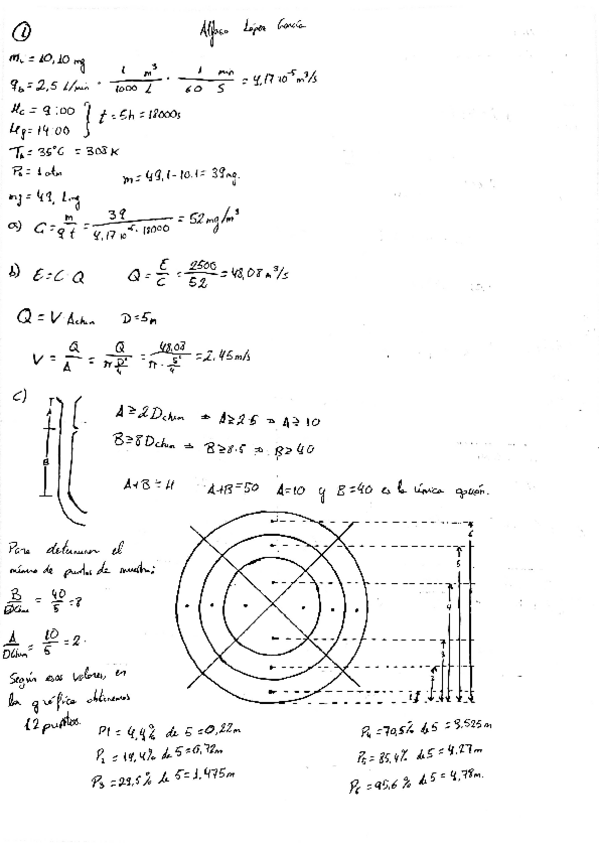 ①
Alfonso López García
m₁ = 10,10 mg
q_b = 2,5 L/min · 1 m³ / 1000 L · 1 min / 60 S = 4,17·10⁻⁵ m³/s
H_c = 9:00
H_g = 14:00 } t = 5h = 18000s
T_b = 35°C = 308 K
P_b = 1 atm
m = 49,1 - 10.1 = 39 mg.
m_g = 49,1 mg
a) C = m / q t = 39 / 4,17·10⁻⁵·18000 = 52 mg/m³
b) E = C·Q Q = E / C = 2500 / 52 = 48,08 m³/s
Q = V A chim D = 5m
V = Q / A = Q / π D²/4 = 48,08 / π · 5²/4 = 2,45 m/s
c)
A
B
A ≥ 2 D chim ⇒ A ≥ 2·5 ⇒ A ≥ 10
B ≥ 8 D chim ⇒ B ≥ 8·5 ⇒ B ≥ 40
A+B = H A+B = 50 A = 10 y B = 40 es la única opción.
Para determinar el
número de puntos de muestra:
B / D chim = 40 / 5 = 8
A / D chim = 10 / 5 = 2.
Según esos valores, en
la gráfica obtenemos
12 puntos.
1
2
3
4
5
6
P1 = 4,4% de 5 = 0,22m
P₂ = 14,4% de 5 = 0,72m
P₃ = 29,5% de 5 = 1,475m
P₄ = 70,5% de 5 = 3,525m
P₅ = 85,4% de 5 = 4,27m
P₆ = 95,6% de 5 = 4,78m.